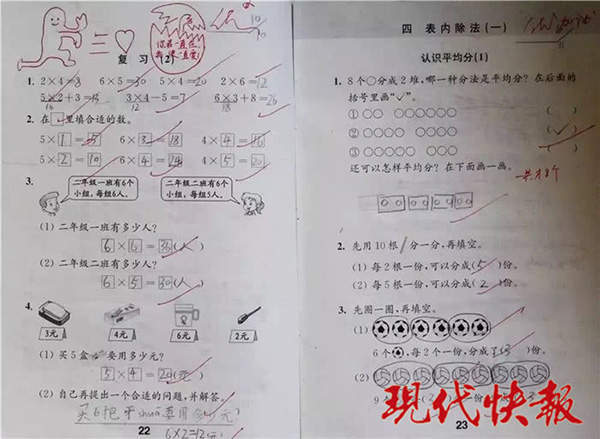 复 习 (2)
1. 2×4=8 6×5=30 5×4=20 2×6=12
5×2+3=13 3×4-5=7 6×3+8=26
10 12 18
2. 在□里填合适的数。
5×1=5 6×3=18 4×4=16
5×2=10 6×4=24 4×5=20
3.
二年级一班有6个小组,每组6人。
二年级二班有6个小组,每组5人。
(1) 二年级一班有多少人?
6×6=36(人)
(2) 二年级二班有多少人?
6×5=30(人)
4.
3元 4元 6元 2元
(1) 买5盒 要用多少元?
5×4=20(元)
(2) 自己再提出一个合适的问题,并解答。
买6把牙shuā要用多少元
6×2=12
22
四 表内除法(一)
认识平均分(1)
1. 8个○分成2堆,哪一种分法是平均分?在后面的
括号里画“✓”。
① ○○ ○○○○○○ ( )
② ○○○○ ○○○○ (✓)
③ ○○○○○ ○○○ ( )
还可以怎样平均分?在下面画一画。
共8个
2. 先用10根 分一分,再填空。
(1) 每2根一份,可以分成(5)份。
(2) 每5根一份,可以分成(2)份。
3. 先圈一圈,再填空。
(1)
6个 ,每2个一份,分成了(3)份。
(2)
现代快報
23